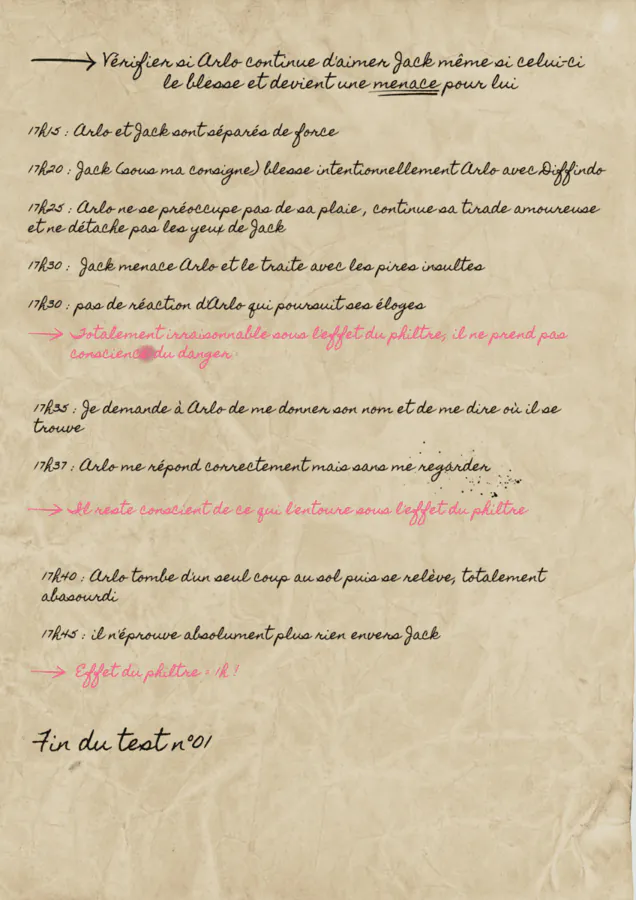 Vérifier si Arlo continue d'aimer Jack même si celui-ci
le blesse et devient une menace pour lui
17h15 : Arlo et Jack sont séparés de force
17h20 : Jack (sous ma consigne) blesse intentionnellement Arlo avec Diffindo
17h25 : Arlo ne se préoccupe pas de sa plaie, continue sa tirade amoureuse
et ne détache pas les yeux de Jack
17h30 : Jack menace Arlo et le traite avec les pires insultes
17h30 : pas de réaction d'Arlo qui poursuit ses éloges
Totalement irraisonnable sous l'effet du philtre, il ne prend pas
conscience du danger
17h35 : Je demande à Arlo de me donner son nom et de me dire où il se
trouve
17h37 : Arlo me répond correctement mais sans me regarder
Il reste conscient de ce qui l'entoure sous l'effet du philtre
17h40 : Arlo tombe d'un seul coup au sol puis se relève, totalement
abasourdi
17h45 : il n'éprouve absolument plus rien envers Jack
Effet du philtre : 1h ?
Fin du test n°01